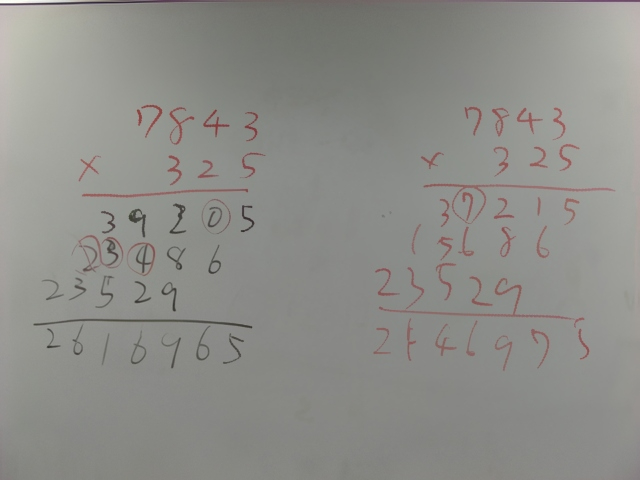 7843
× 325
39205
23486
23529
2616965
7843
× 325
37215
15686
23529
2146975